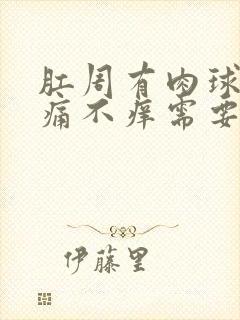 肛周有肉球
痛不痒需要
伊藤里